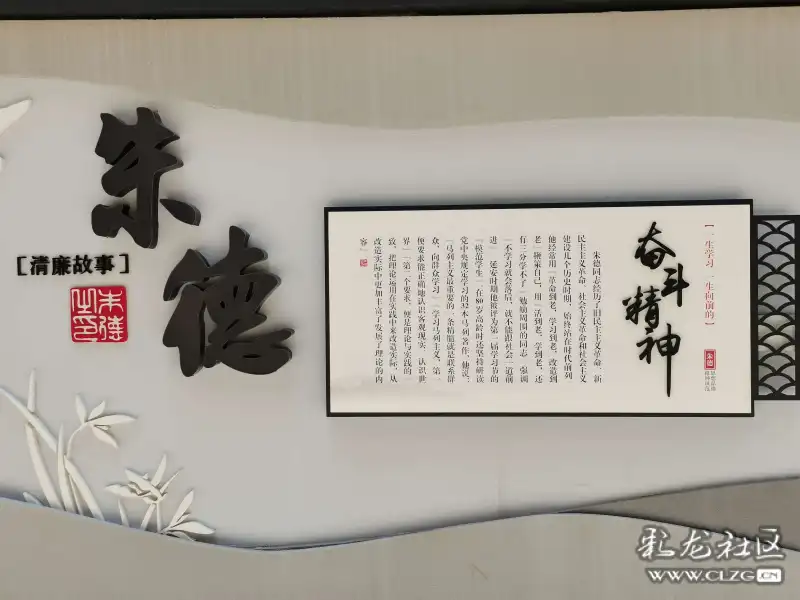 朱德
［清廉故事］
朱德之印
【一生学习 一生向前的】
朱德
奋斗精神
朱德同志经历了旧民主主义革命、新
民主主义革命、社会主义革命和社会主义
建设几个历史时期，始终站在时代前列
他经常用“革命到老，学习到老，改造到
老”鞭策自己，用“活到老，学到老，还
有三分学不了”勉励周围的同志，强调
“不学习就会落后，就不能跟社会一道前
进”。延安时期他被评为第一届学习节的
“模范学生”，在80岁高龄时还坚持研读
党中央规定学习的32本马列著作。他说，
“马列主义最重要的一条精髓就是联系群
众，向群众学习”“学习马列主义，第一
便要求能正确地认识客观现实，认识世
界”“第二个要求，便是理论与实践的一
致，把理论运用在实践中来改造实际，从
改造实际中更加丰富了发展了理论的内
容”
彩龙社区
WWW.CLZG.CN